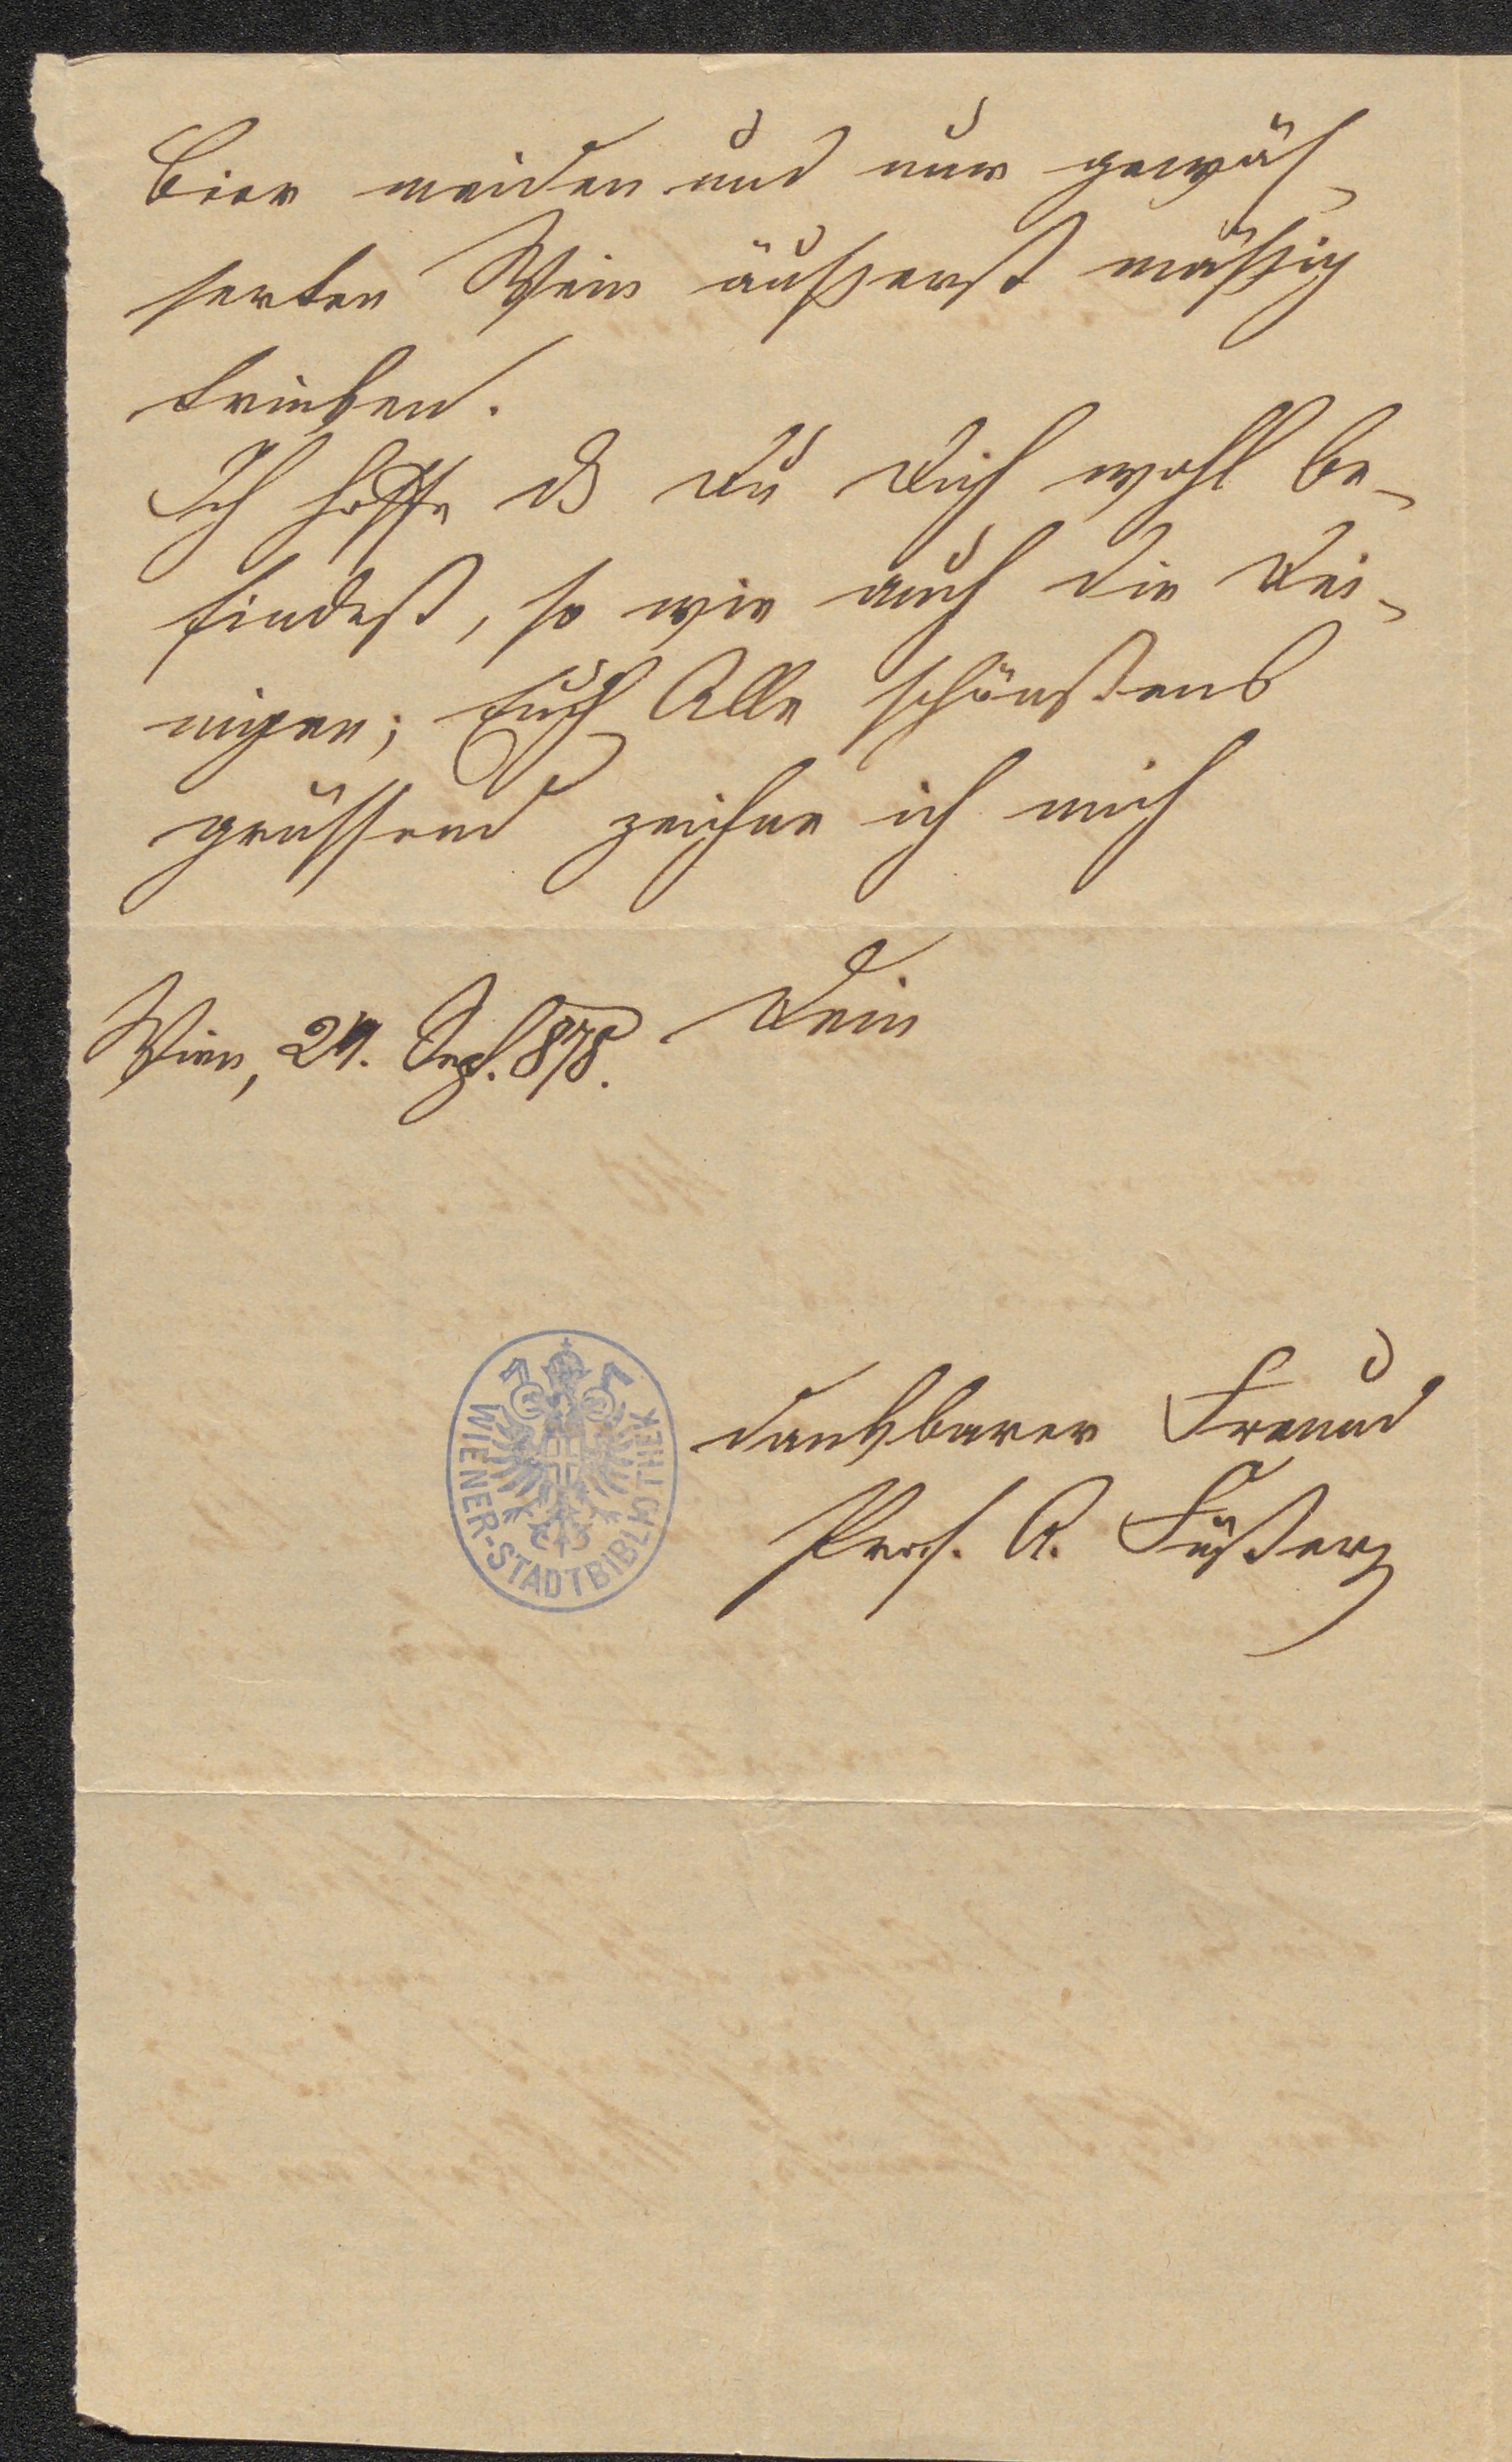 Bier meiden und nur gewäs-
serten Wein äußerst mäßig
trinken.
Ich hoffe dß Du Dich wohl be-
findest, so wie auch die Dei-
nigen; Euch Alle schönstens
grüssend zeichne ich mich
Dein
Wien, Sept. 878.
dankbarer Freund
Prof. A. Füster
WIENER-STADTBIBLIOTHEK